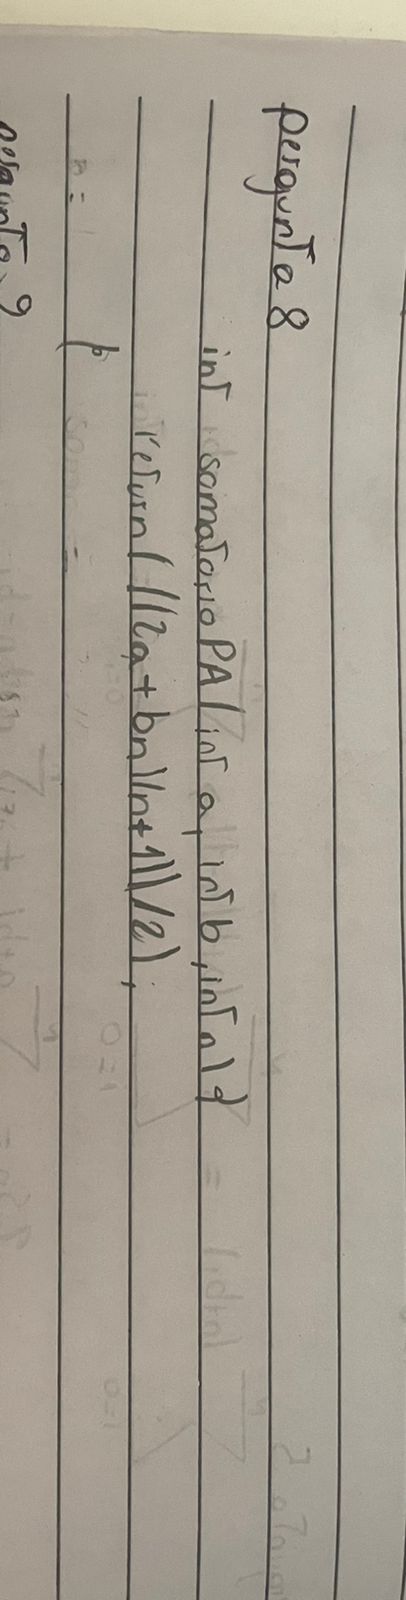 pergunta 8
int somatorioPA(int a, int b, int n){
return(((2a+bn)(n+1))/2);
}
pergunta 9